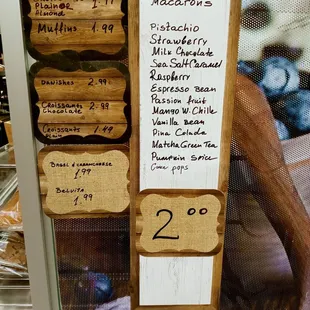 Plain
Almond 1.99
Muffins 1.99
Danishes 2.99
Croissants 2.99
Chocolate
Croissants 1.49
Plain
Bagel & Creamcheese
1.99
Belvita
1.99
Macarons
Pistachio
Strawberry
Milk Chocolate
Sea Salt Caramel
Raspberry
Espresso Bean
Passion fruit
Mango W. Chille
Vanilla Bean
Pina Colada
Matcha Green Tea
Pumpkin Spice
Cake pops
2.00